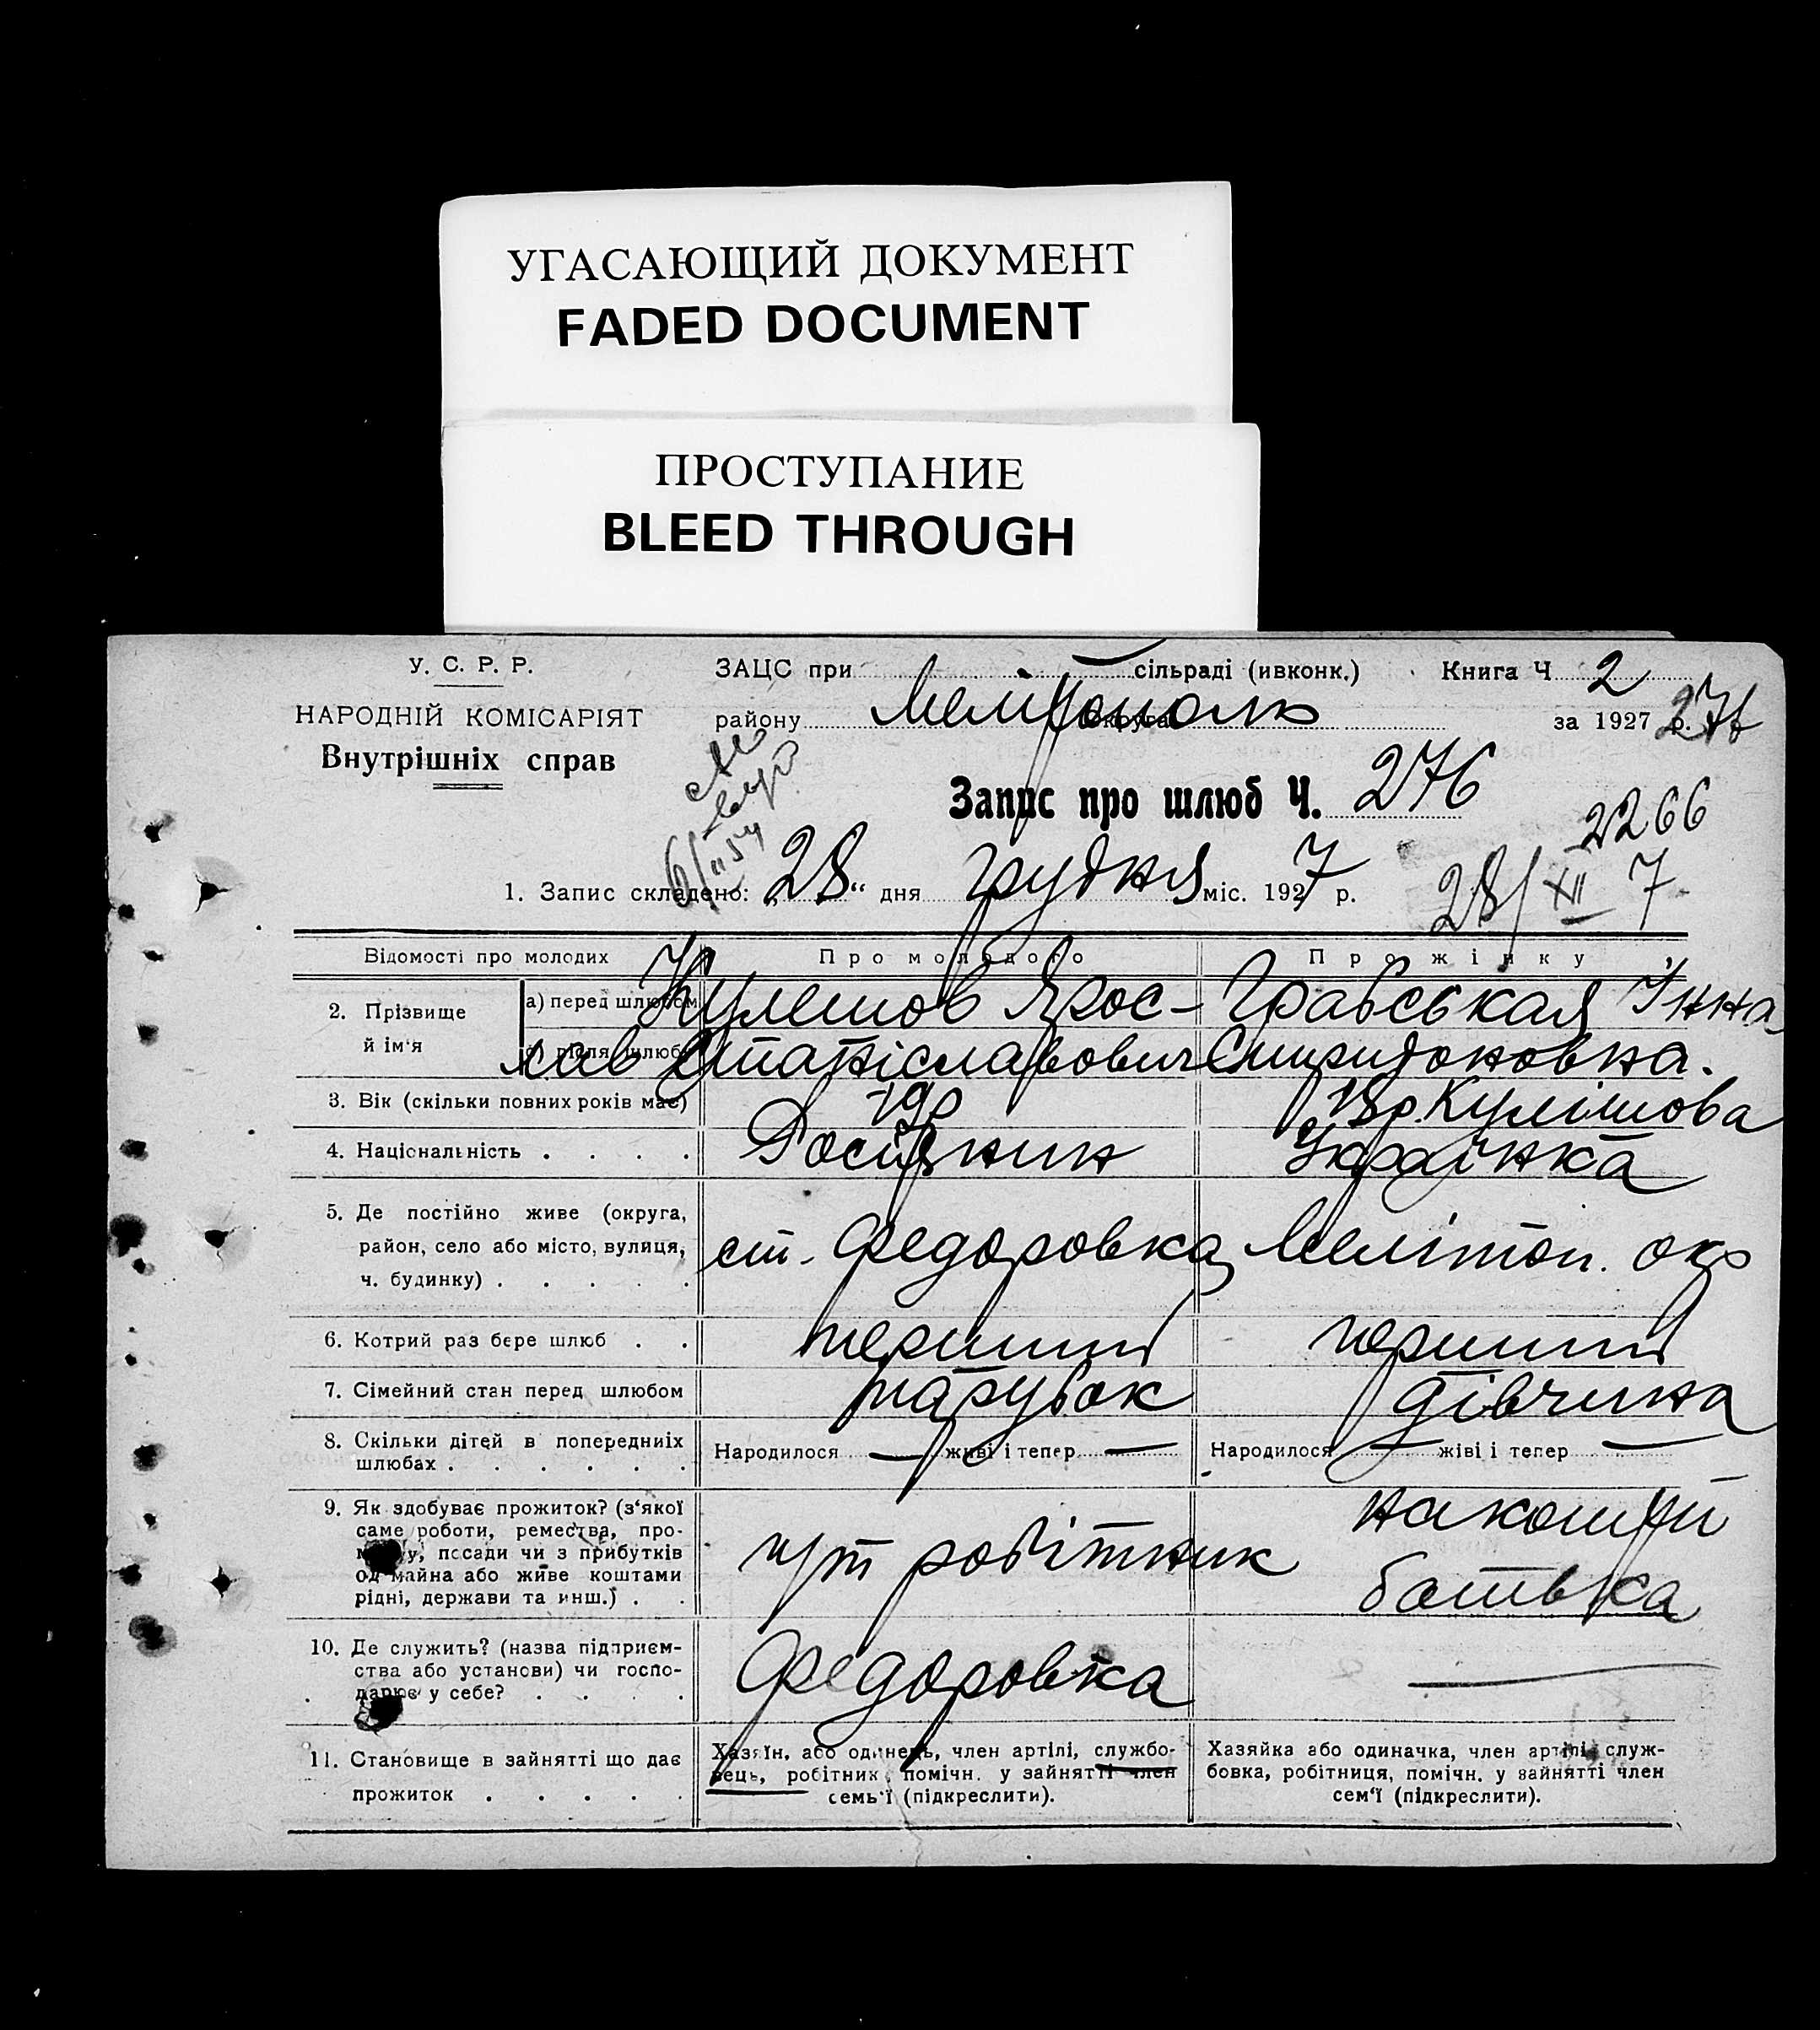 УГАСАЮЩИЙ ДОКУМЕНТ
FADED DOCUMENT
ПРОСТУПАНИЕ
BLEED THROUGH
У. С. Р. Р.
НАРОДНІЙ КОМІСАРІЯТ
Внутрішніх справ
ЗАЦС при сільраді (ивконк.) Книга Ч 2
району Мелітополь округа за 1927 р. 276
Запис про шлюб Ч. 276
2266
1. Запис складено: „28“ дня грудня міс. 1927 р.
28/XII 7
Відомості про молодих Про молодого Про жінку
2. Прізвище й ім'я
а) перед шлюбом Кулешов Ярос- Грабськая Інна
б) після шлюбу лав Станіславович Спиридоновна.
3. Вік (скільки повних років має) 19р 18р. Кулішова
4. Національність . . . . Росіянин Українка
5. Де постійно живе (округа,
район, село або місто, вулиця,
ч. будинку) . . . . . ст. Федоровка Мелітоп. окр
6. Котрий раз бере шлюб . . перший перший
7. Сімейний стан перед шлюбом парубок дівчина
8. Скільки дітей в попередниіх
шлюбах . . . . . . Народилося — живі і тепер — Народилося — жіві і тепер —
9. Як здобуває прожиток? (з'якої
саме роботи, ремества, про-
у, посади чи з прибутків
од майна або живе коштами
рідні, держави та инш.) . .
робітник
на кошти
батька
10. Де служить? (назва підприєм-
ства або установи) чи госпо-
дарює у себе? . . . . Федоровка —
11. Становище в зайнятті що дає
прожиток . . . . .
Хазяїн, або одинець, член артілі, службо-
вець, робітник, помічн. у зайнятті член
семь'ї (підкреслити).
Хазяйка або одиначка, член артілі служ-
бовка, робітниця, помічн. у зайнятті член
сем'ї (підкреслити).